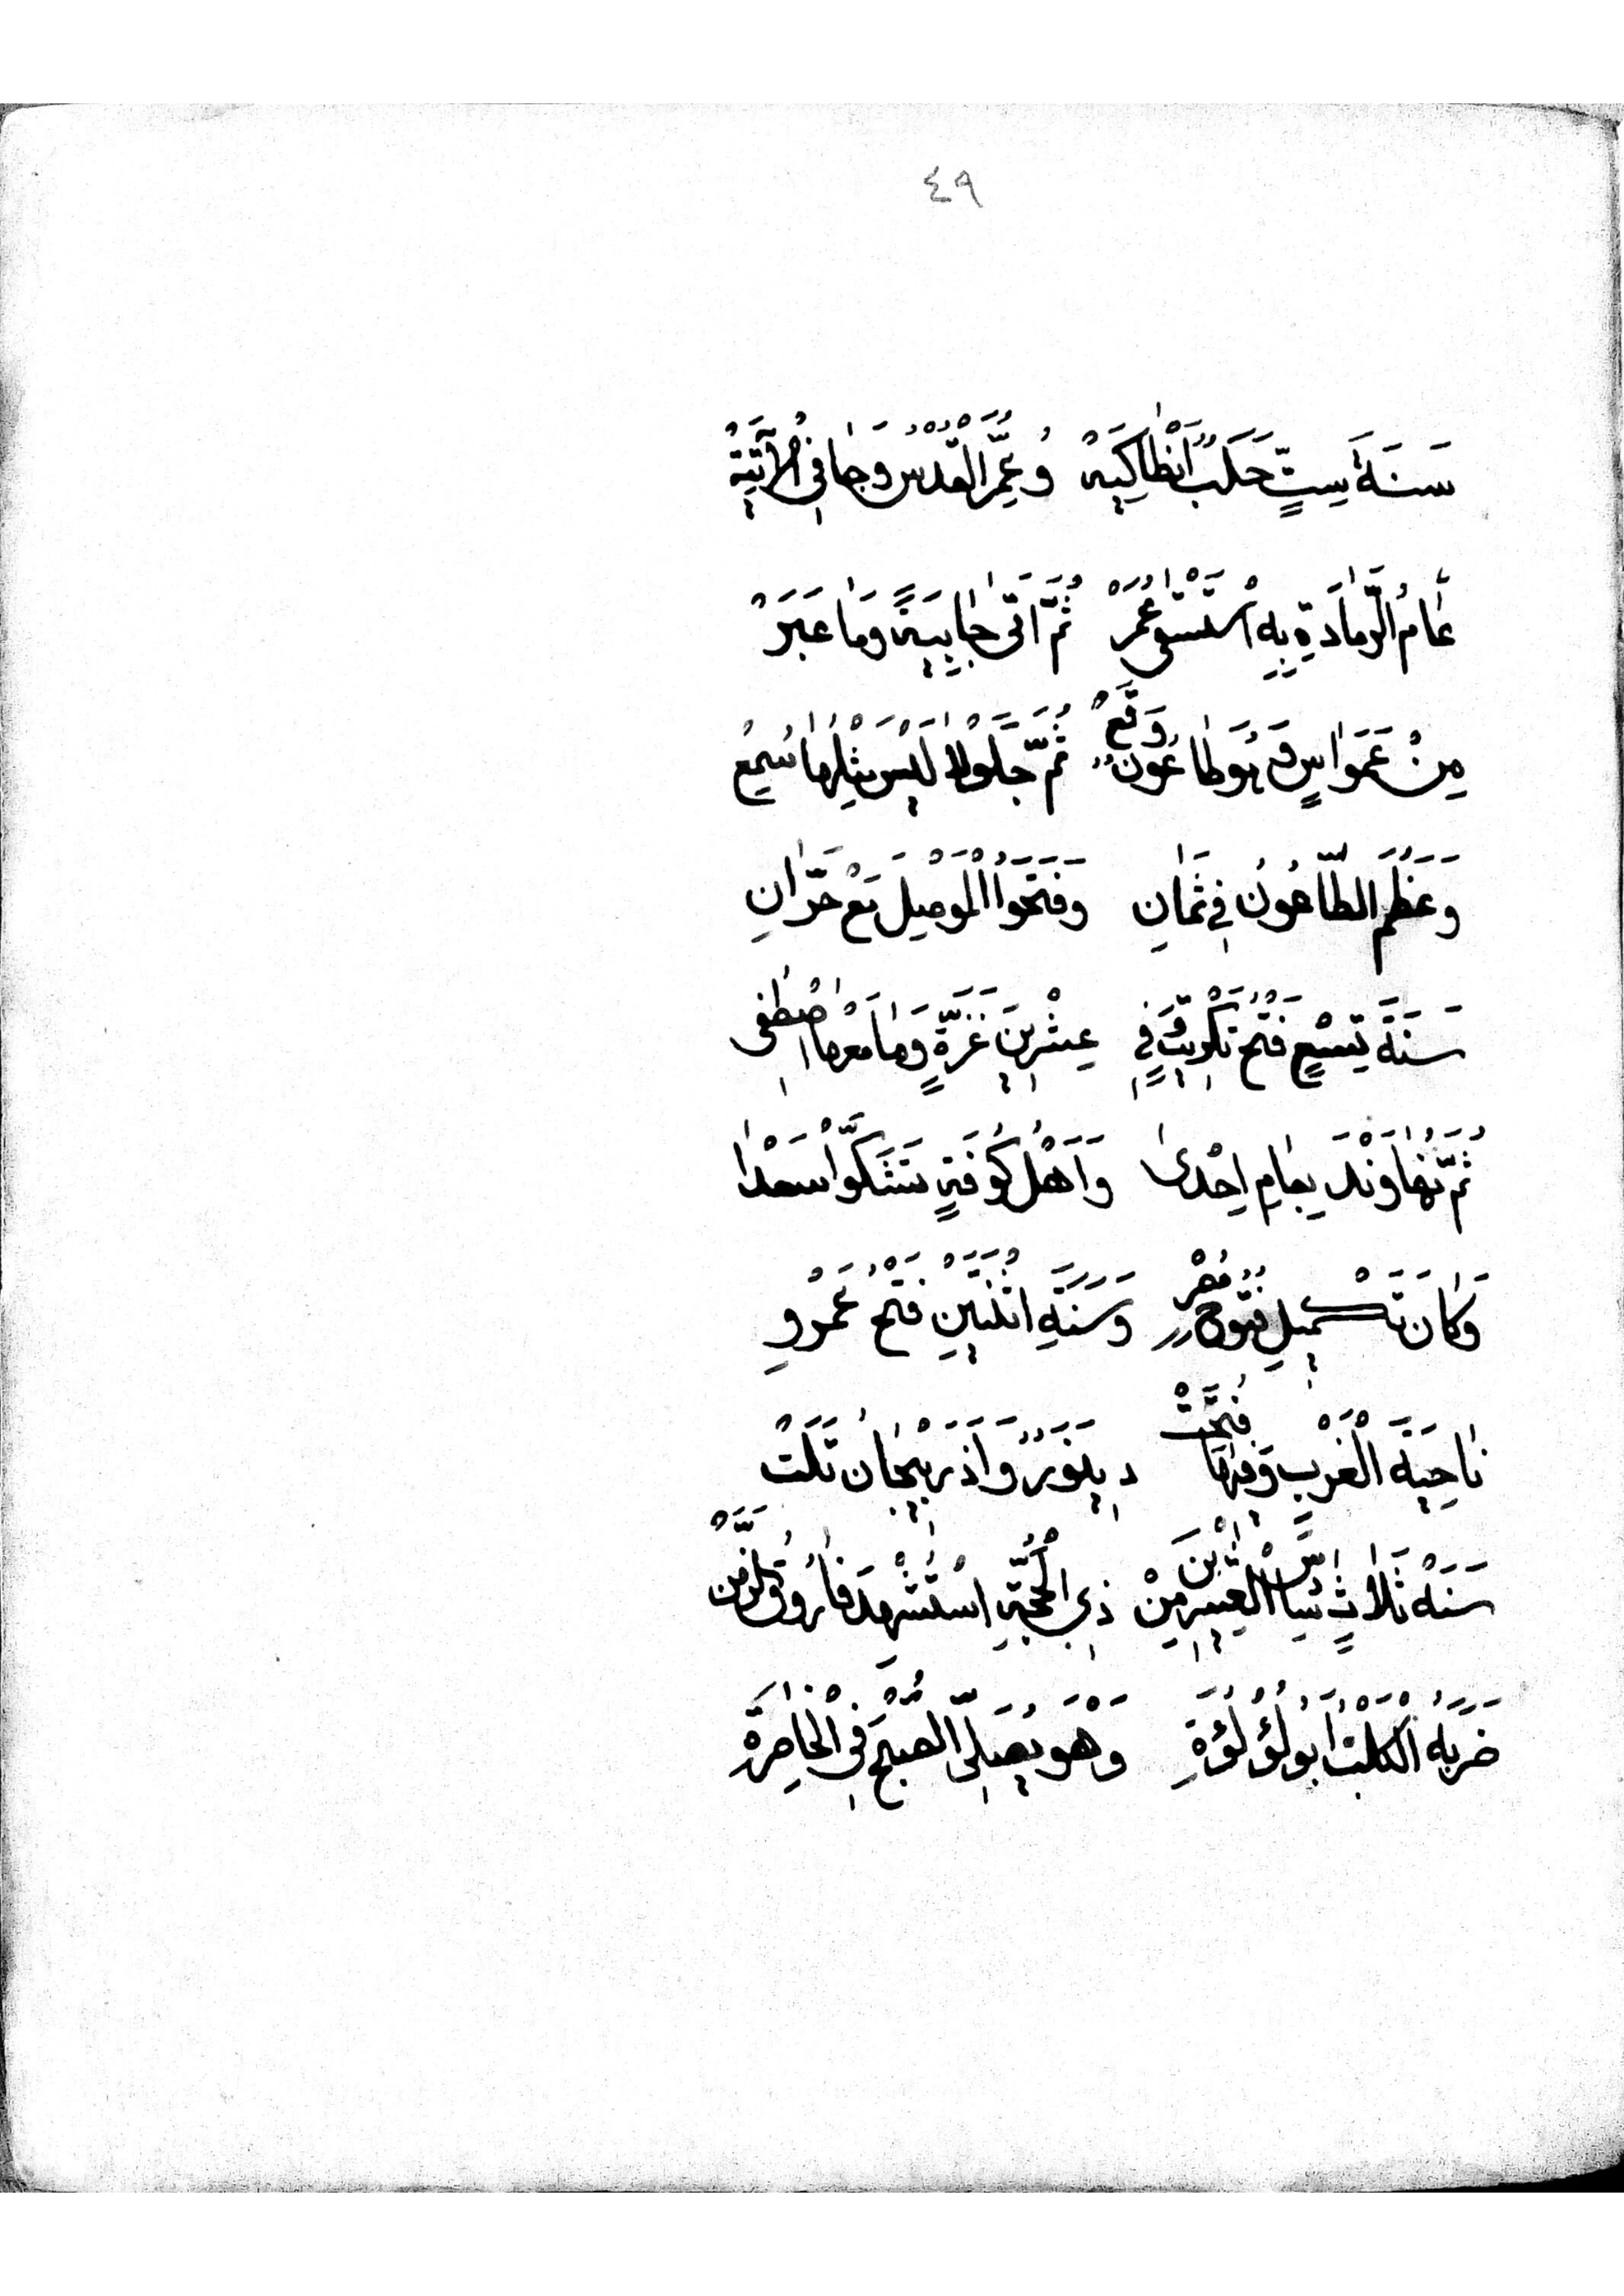 ٤٩
سَنَةَ سِتٍّ حَلَبٌ اَنْطَاكِيَهْ وُعُمِّرَ الْقُدْسُ وَجَا فِي الْآتِيَةْ
عَامُ الرَّمَادَةِ بِهِ اسْتَسْقَى عُمَرْ ثُمَّ اَتَى جَابِيَةً وَمَا عَبَرْ
مِنْ عَمَوَاسٍ وَهُوَ طَاعُونٌ وَقَعْ ثُمَّ جَلُولَا لَيْسَ مِثْلُهَا سُمِعْ
وَعَظُمَ الطَّاعُونُ فِي ثَمَانِ وَفَتَحُوا الْمَوْصِلَ مَعْ حَرَّانِ
سَنَةَ تِسْعٍ فَتْحُ تَكْرِيتٍ وَفِي عِشْرِينَ غَزَّةٍ وَمَا مَعْهَا اصْطُفِى
ثُمَّ نُهَاوَنْدَ بِعَامِ اِحْدَى وَاَهْلُ كُوفَةٍ تَشَكَّوْا سَعْدَا
وَكَانَ تَكْمِيلُ فُتُوحِ مِصْرِ وَسَنَةِ اثْنَتَيْنِ فَتْحُ عَمْرِو
نَاحِيَةَ الْغَرْبِ وَفِيهَا فُتِحَتْ دِينَوَرٌ وَاَذْرَبِيجَانُ تَلَتْ
سَنَةْ ثَلَاثٍ الْعِشْرِينَ مِنْ ذِي الْحُجَّةِ اسْتُشْهِدَ فَارُوقُ
ضَرَبَهُ الْكَلْبُ اَبُو لُؤْلُؤَةِ وَهْوَ يُصَلِّى الصُّبْحَ فِي الْخَاصِرَةِ